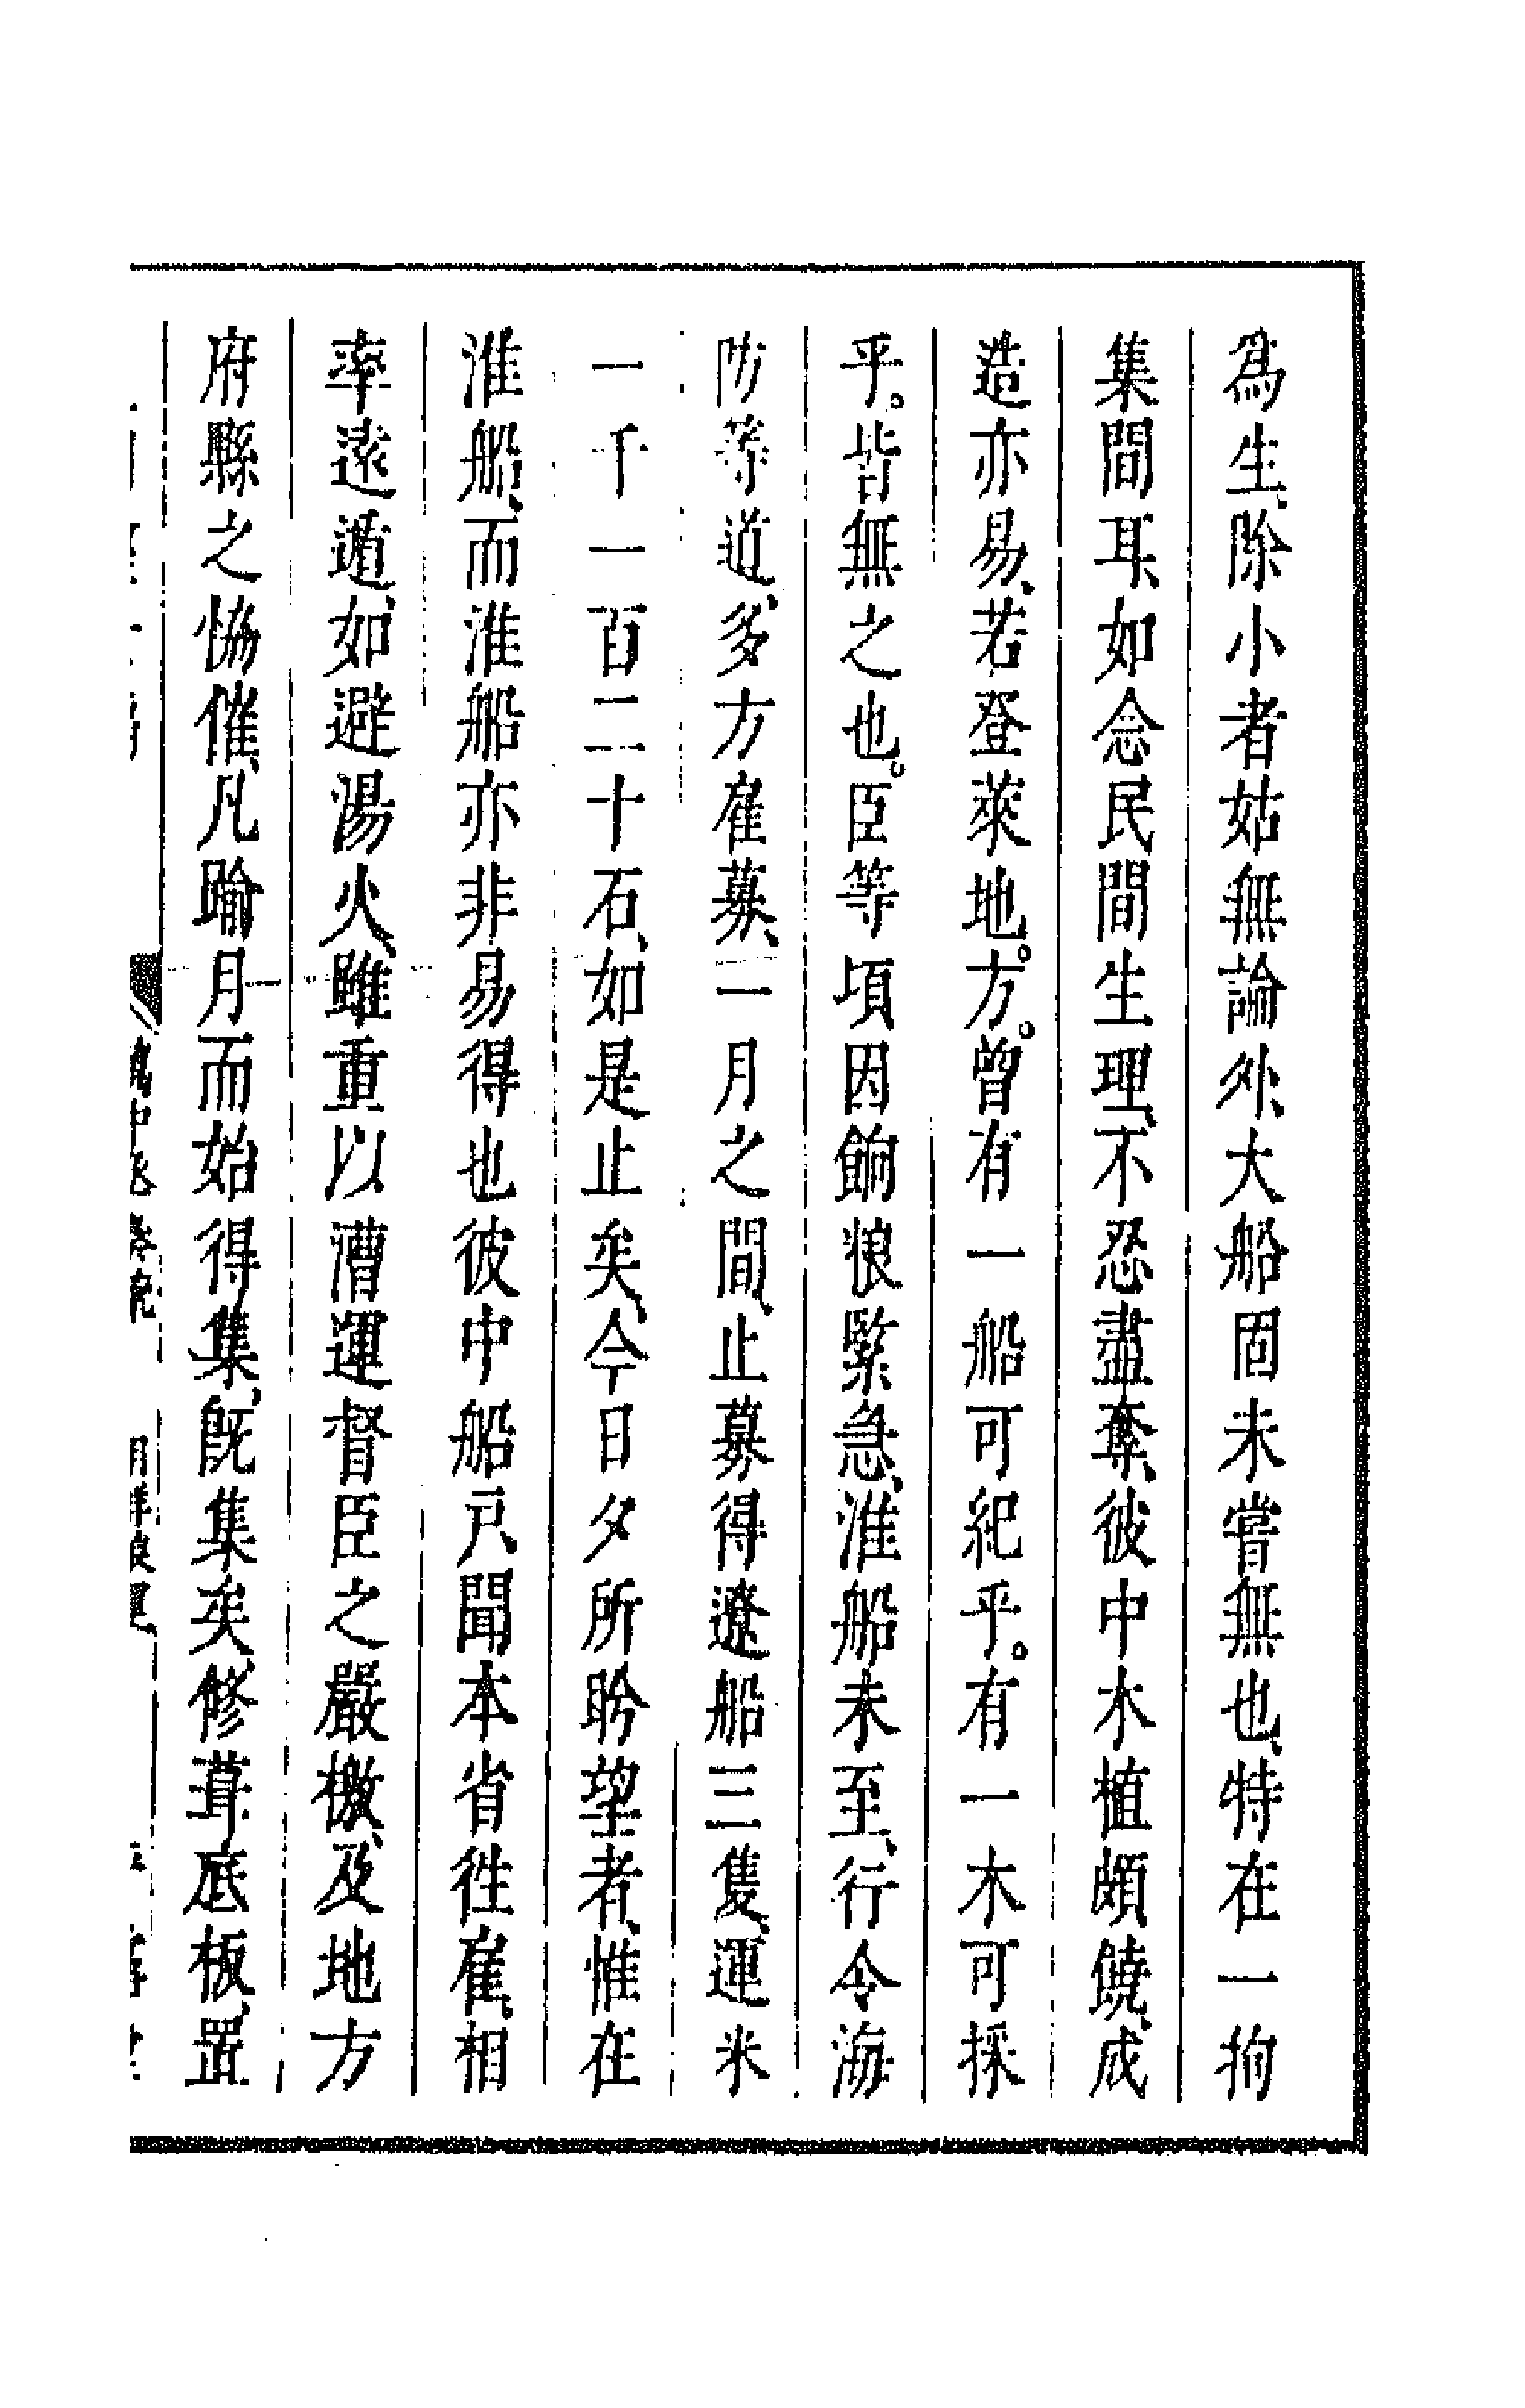 為生、除小者姑無論外、大船固未嘗無也、特在一拘
集間耳、如念民間生理、不忍盡奪、彼中木植頗饒、成
造亦易、若登萊地。方。曾有一船可紀乎。有一木可採
乎。皆無之也。臣等頃因餉粮緊急、淮船未至、行令海
防等道、多方雇募、一月之間、止募得遼船三隻、運米
一千一百二十石、如是止矣、今日夕所盻望者、惟在
淮船、而淮船亦非易得也彼中船戸聞本省徃雇、相
率逺遁、如避湯火、雖重以漕運督臣之嚴檄、及地方
府縣之恊催、凡踰月而始得集、旣集矣、修葺底板、置